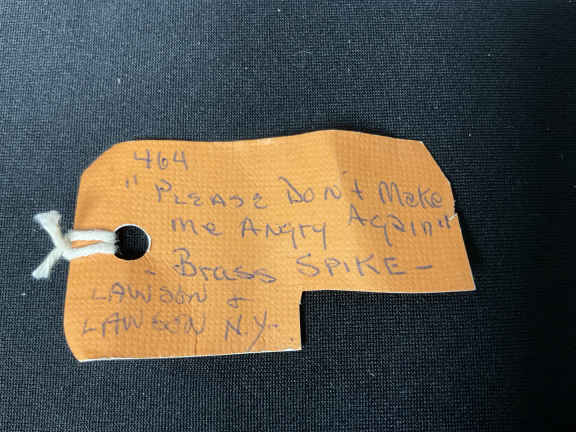 464
"Please Don't Make
me Angry Again"
- Brass SPIKE -
LAWSON &
LAWSON N.Y.